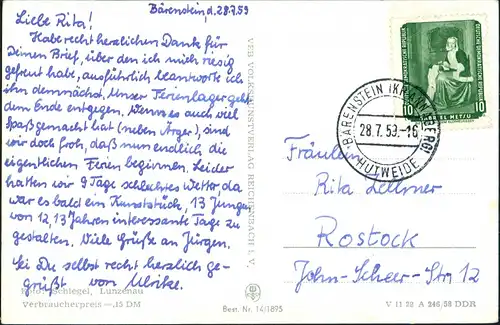 Bärenstein, d. 28.7.59
Liebe Rita!
Habe recht herzlichen Dank für
Deinen Brief, über den ich mich riesig
gefreut habe, ausführlich beantworte ich
ihn demnächst. Unser Ferienlager geht
dem Ende entgegen. Wenn es auch viel
Spaß gemacht hat (neben Ärger), sind
wir doch froh, daß nun endlich die
eigentlichen Ferien beginnen. Leider
hatten wir 9 Tage schlechtes Wetter, da
war es bald ein Kunststück, 13 Jungen
von 12, 13 Jahren interessante Tage zu
gestalten. Viele Grüße an Jürgen.
Sei Du selbst recht herzlich ge-
grüßt von Ulrike.
Foto: Schlegel, Lunzenau
Verbraucherpreis —,15 DM
VEB VOLKSKUNSTVERLAG REICHENBACH I. V.
Best. Nr. 14/1895
DEUTSCHE DEMOKRATISCHE REPUBLIK
10 10
GABRIEL METSU
BÄRENSTEIN (KR. ANNABERG)
28.7.59.-16
HUTWEIDE
Fräulein
Rita Lellmer
Rostock
John-Scheer-Str. 12
V 11 28 A 246/58 DDR